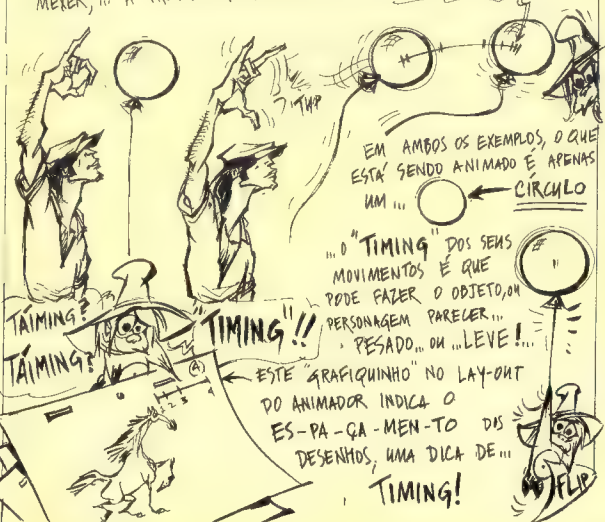 MEXER, ... A
TUP
EM AMBOS OS EXEMPLOS, O QUE
ESTÁ SENDO ANIMADO É APENAS
UM ... CÍRCULO
... O "TIMING" DOS SEUS
MOVIMENTOS É QUE
PODE FAZER O OBJETO, OU
PERSONAGEM PARECER...
PESADO... OU ... LEVE!...
TÁIMING?
TÁIMING?
"TIMING"!!
A
1 2 3 4
ESTE "GRAFIQUINHO" NO LAY-OUT
DO ANIMADOR INDICA O
ES-PA-ÇA-MEN-TO DOS
DESENHOS, UMA DICA DE...
TIMING!
FLIP